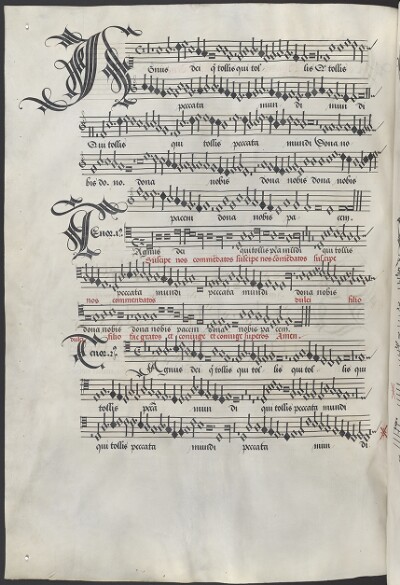 Agnus dei q̄ tollis qui tol lis Q tollis
peccata mun di mun di
Qui tollis qui tollis peccata mundi Dona no
bis do. no. dona nobis dona nobis dona nobis
pacem dona nobis pa cem.
Tenor. 1º. Agnus dei qui tollis pcc̄a mūdi qui tollis
Suscipe nos commēdatos suscipe nos cōmēdatos suscipe
peccata mundi peccata mundi dona nobis
nos commendatos dulci filio
dona nobis dona nobis pacem dona nobis pa cem.
dulci filio fac gratos et coniuge et coniuge superos Amen.
Tenor. 2º. Agnus dei q̄ tollis qui tol lis qui tol lis qui
tollis pcc̄a mun di qui tollis peccata mundi
qui tollis peccata mundi peccata mun di